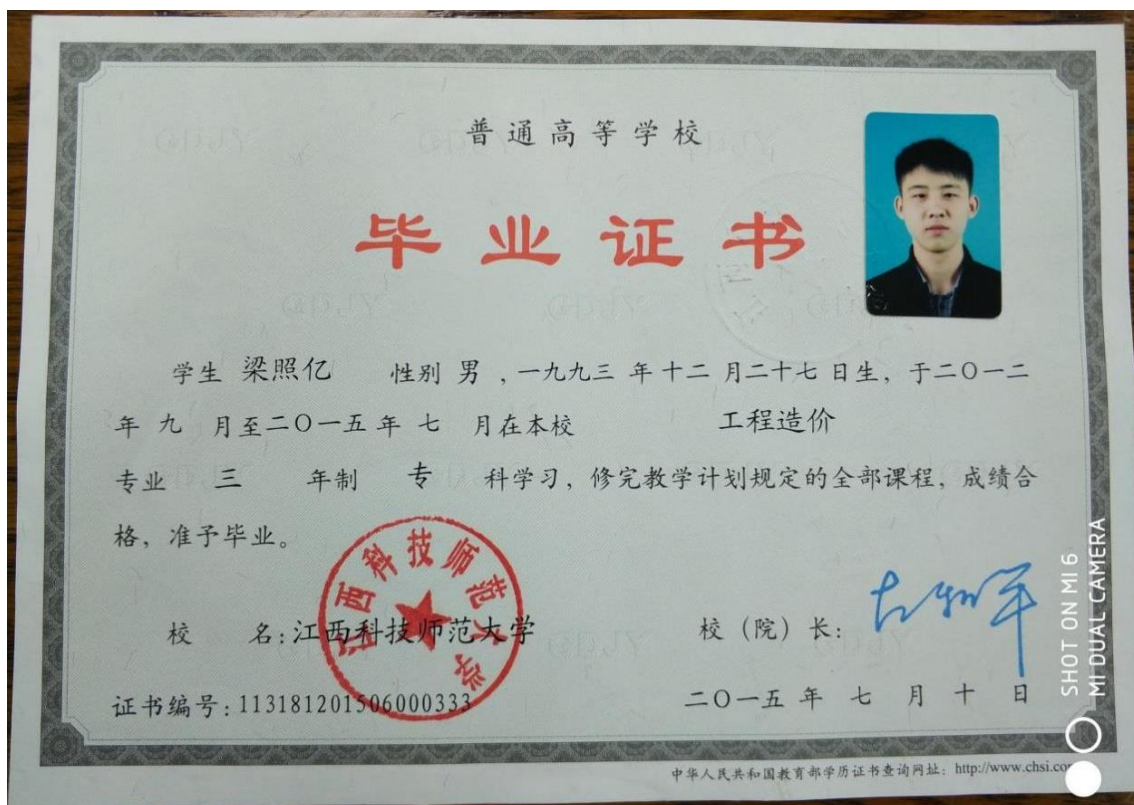 普通高等学校
毕业证书
学生 梁照亿 性别 男 ，一九九三 年 十二 月二十七 日生，于二〇一二
年 九 月至二〇一五 年 七 月在本校 工程造价
专业 三 年制 专 科学习，修完教学计划规定的全部课程，成绩合
格，准予毕业。
江西科技师范大学
校 名：江西科技师范大学 校（院）长：
证书编号：113181201506000333 二〇一五 年 七 月 十 日
中华人民共和国教育部学历证书查询网址：http://www.chsi.co
SHOT ON MI 6
MI DUAL CAMERA